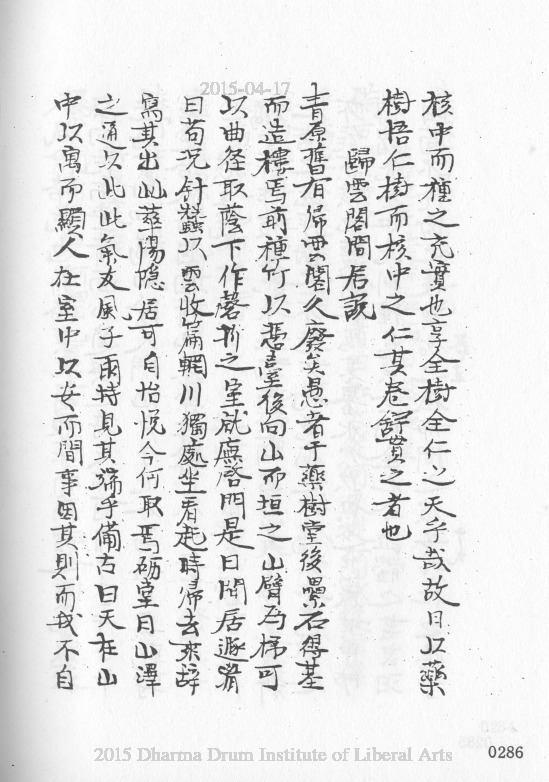 核中而種之充實也享全樹全仁之天乎哉故曰以藥
樹悟仁樹而核中之仁其卷舒貫之者也
歸雲閣閒居說
青原舊有歸雲閣久廢矣愚者于藥樹堂後壘石得基
而造樓焉前種竹以憑臺後向山而垣之山臂為梯可
以曲徑取蔭下作磬折之室就廡啓門是曰閒居遯
曰荀況針蠶以雲收篇輞川獨處坐看起時歸去來辭
寫其出此華陽隐居可自怡悅今何取焉砺堂曰山澤
之通以此此氣友風子雨特見其端乎備古曰天在山
中以寓而顯人在室中以安而閒事因其則而我不自
2015-04-17
2015 Dharma Drum Institute of Liberal Arts
0286